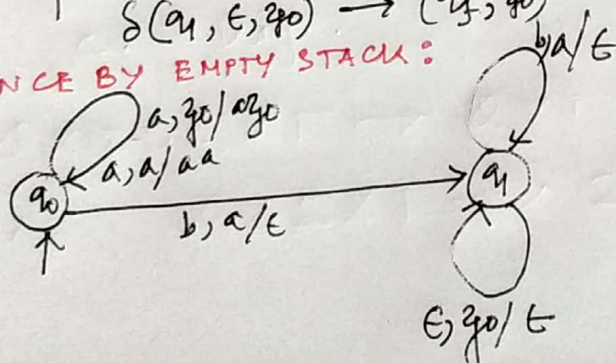 δ(q1, ε, z0) → (qf, z0)
NCE BY EMPTY STACK :
b,a/ε
a, z0/az0
a, a/aa
q0
q1
b, a/ε
ε, z0/ε